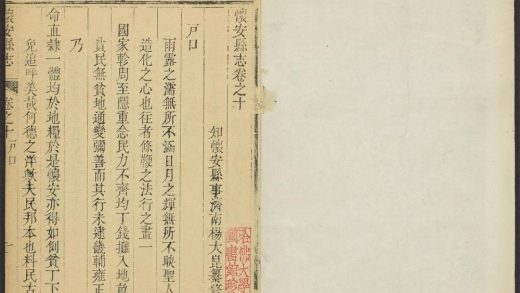 懷安縣志卷之十
知懷安縣事濟南楊大崑纂修
戶口
雨露之濡無所不涵日月之輝無所不映聖人
造化之心也往者條鞭之法行之盡一
國家軫周至隱重念民力不齊均丁錢攤入地畝
貧民無貧地通變彌善而其行未逮畿輔雍正
乃
命直隸一體均於地糧於是懷安亦得如例貧丁下
免追呼美哉何德之洋歟夫民邦本也料民古
懷安縣志 卷之十 戶口 一
哈佛大學
圖書館珍